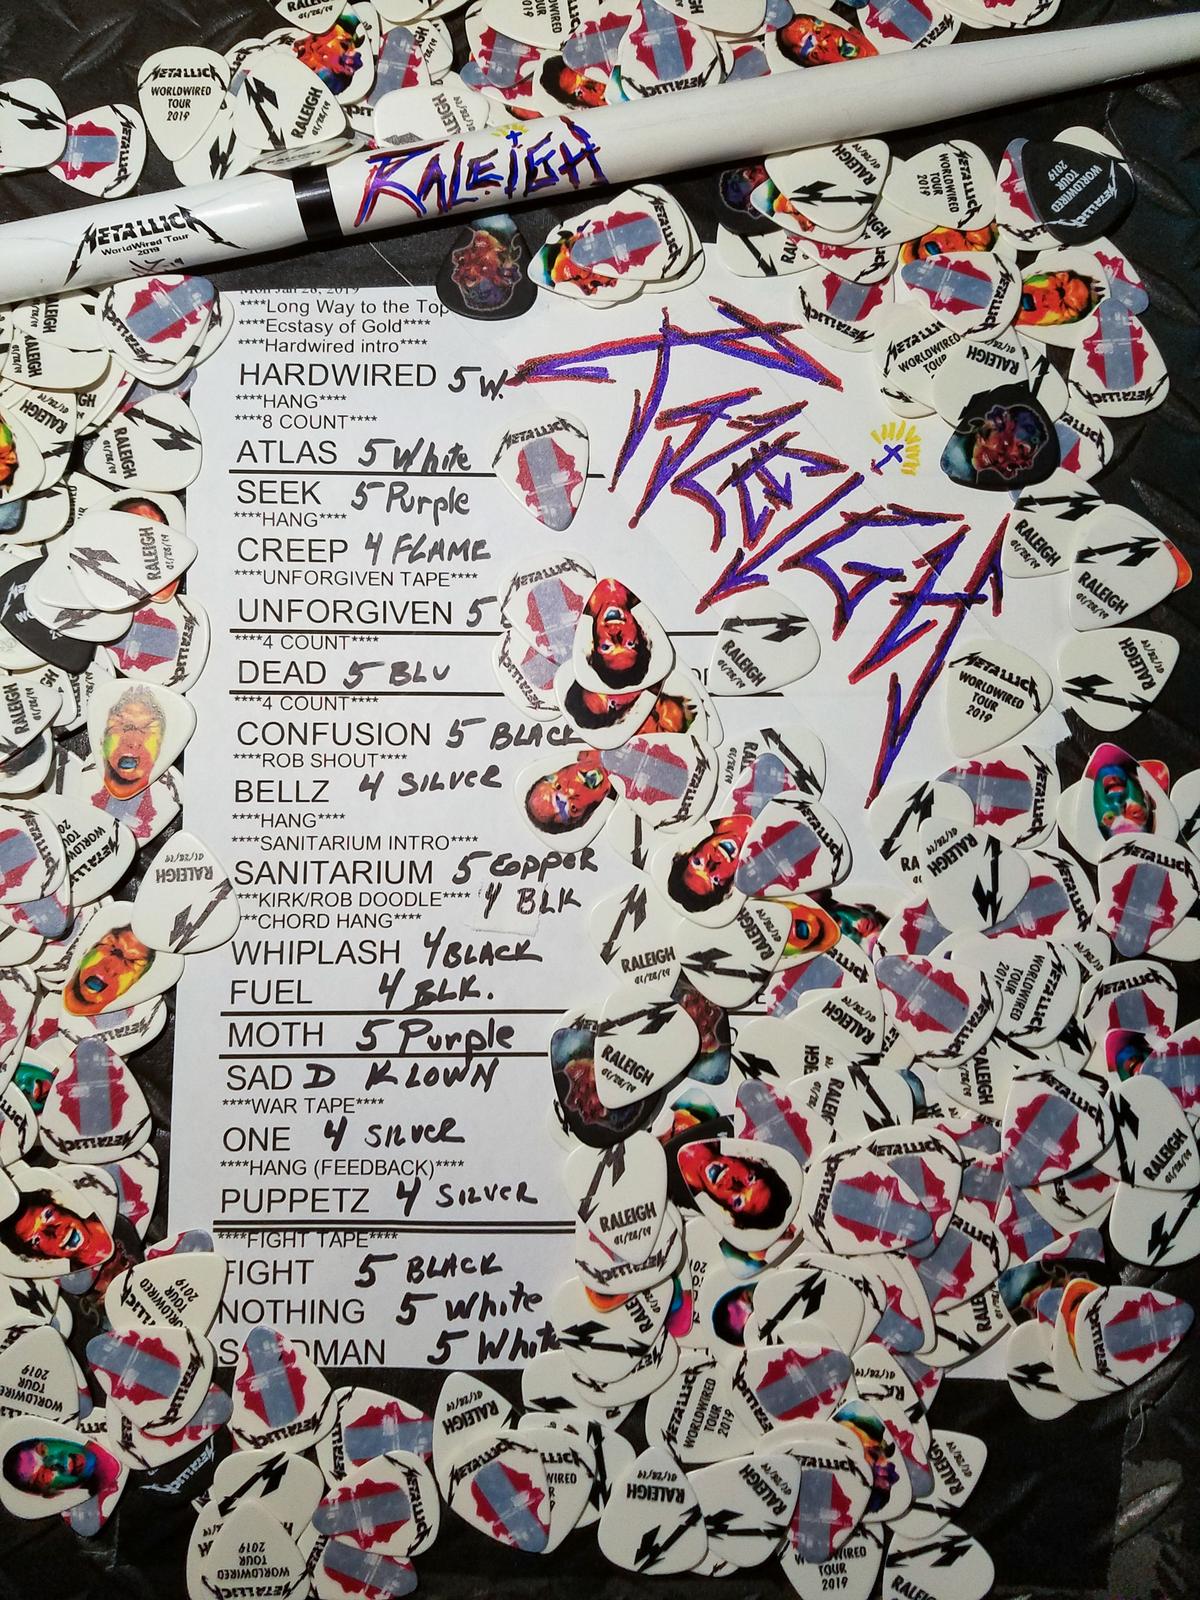 METALLICA
WORLDWIRED
TOUR
2019
RALEIGH
01/28/19
RALEIGH
METALLICA
WorldWired Tour
2019
Mon Jan 28, 2019
****Long Way to the Top
****Ecstasy of Gold****
****Hardwired intro****
HARDWIRED 5 W.
****HANG****
****8 COUNT****
ATLAS 5 White
SEEK 5 Purple
****HANG****
CREEP 4 FLAME
****UNFORGIVEN TAPE****
UNFORGIVEN 5
****4 COUNT****
DEAD 5 BLU
****4 COUNT****
CONFUSION 5 BLACK
****ROB SHOUT****
BELLZ 4 SILVER
****HANG****
****SANITARIUM INTRO****
SANITARIUM 5 COPPER
****KIRK/ROB DOODLE**** 4 BLK
***CHORD HANG****
WHIPLASH 4 BLACK
FUEL 4 BLK.
MOTH 5 Purple
SAD D KLOWN
****WAR TAPE****
ONE 4 SILVER
****HANG (FEEDBACK)****
PUPPETZ 4 SILVER
****FIGHT TAPE****
FIGHT 5 BLACK
NOTHING 5 White
S DMAN 5 White
RALEIGH
METALLICA
RALEIGH
01/28/19
METALLICA
WORLDWIRED
TOUR
2019